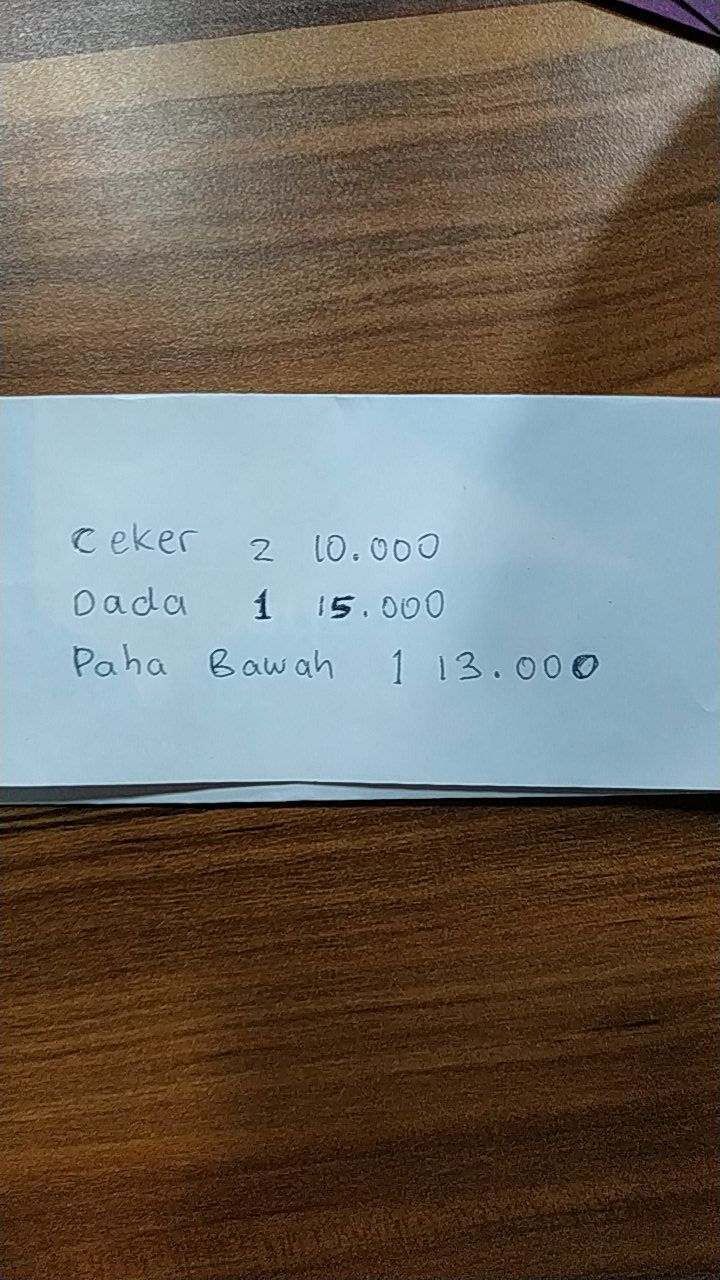 Ceker 2 10.000
Dada 1 15.000
Paha Bawah 1 13.000